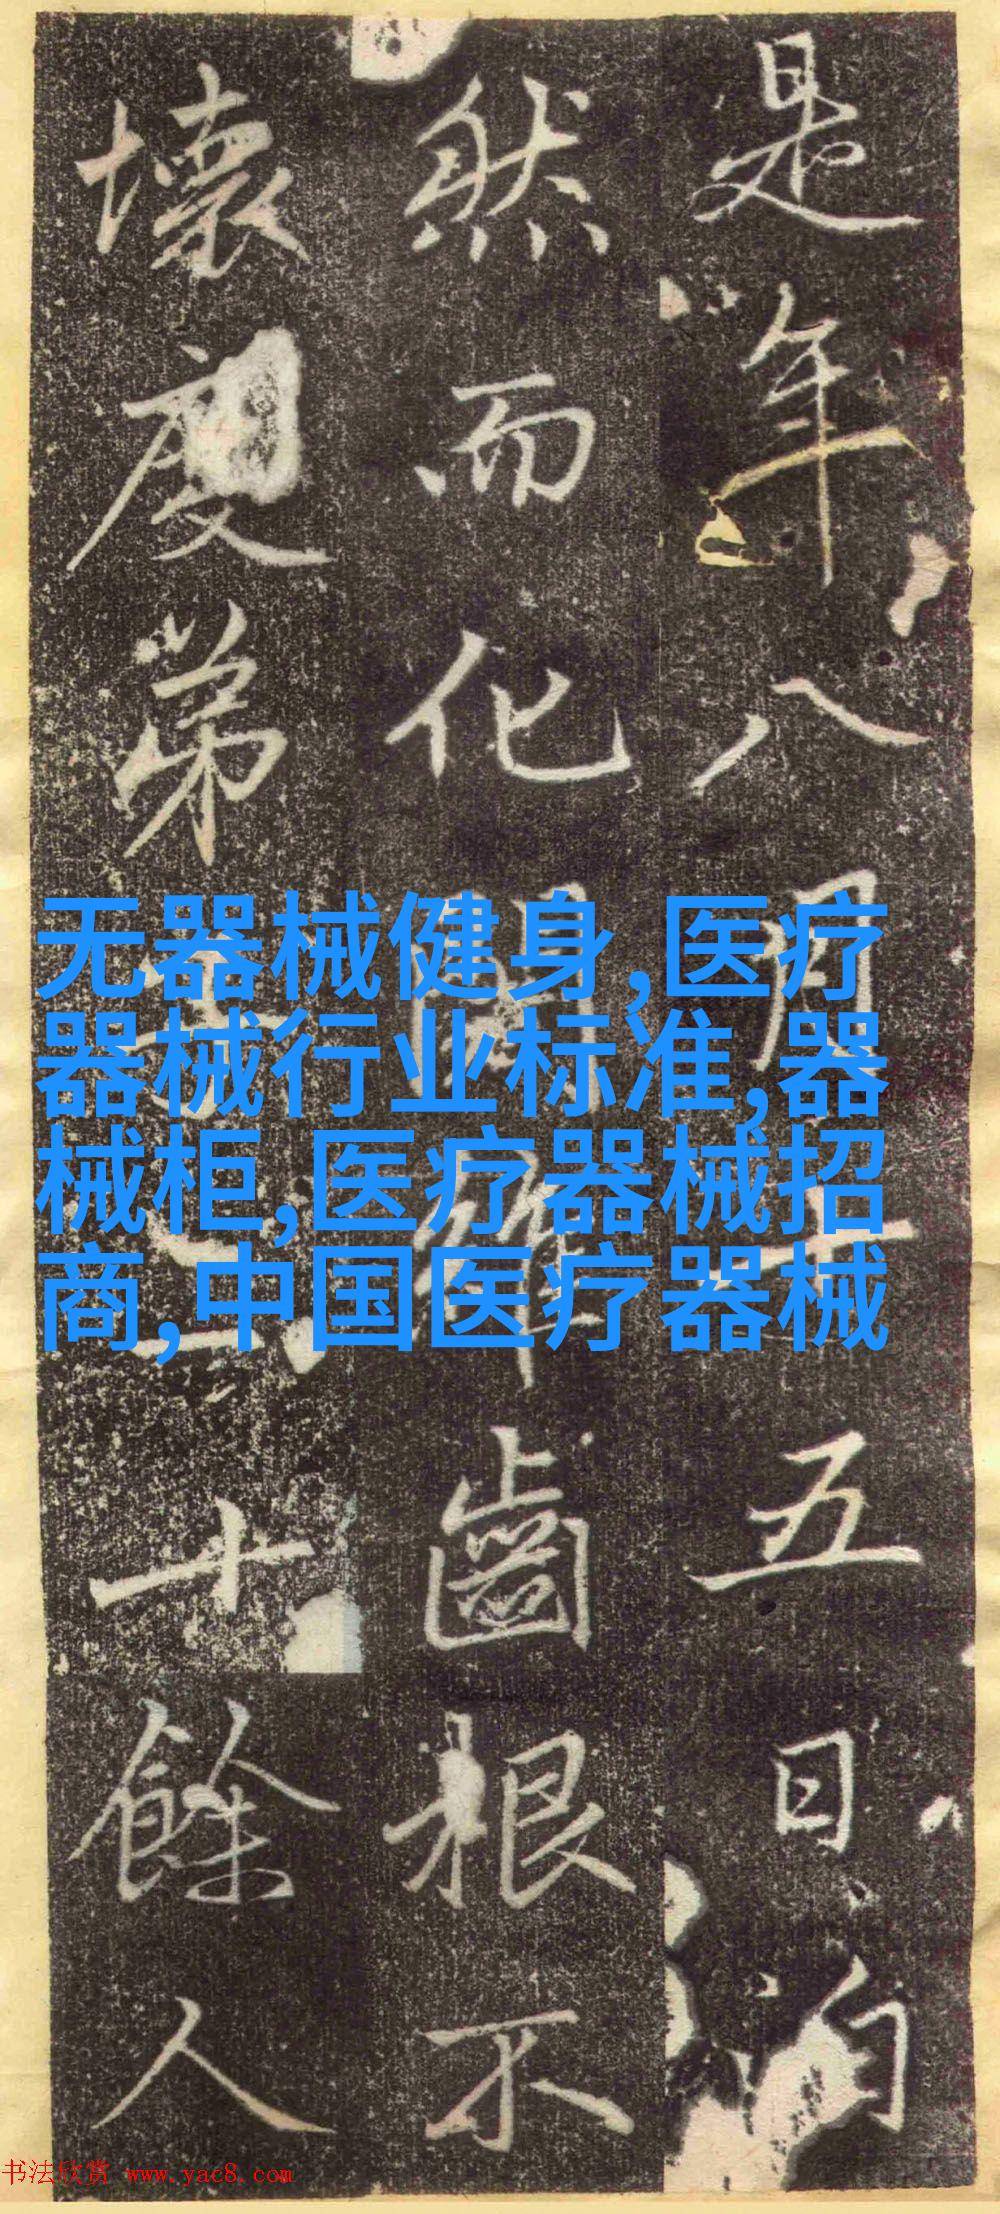 是年八月十五日
然而化闍維齒根不
壞度弟子一十餘人
无器械健身,医疗
器械行业标准,器
械柜,医疗器械招
商,中国医疗器械
书法欣赏 www.yac8.com